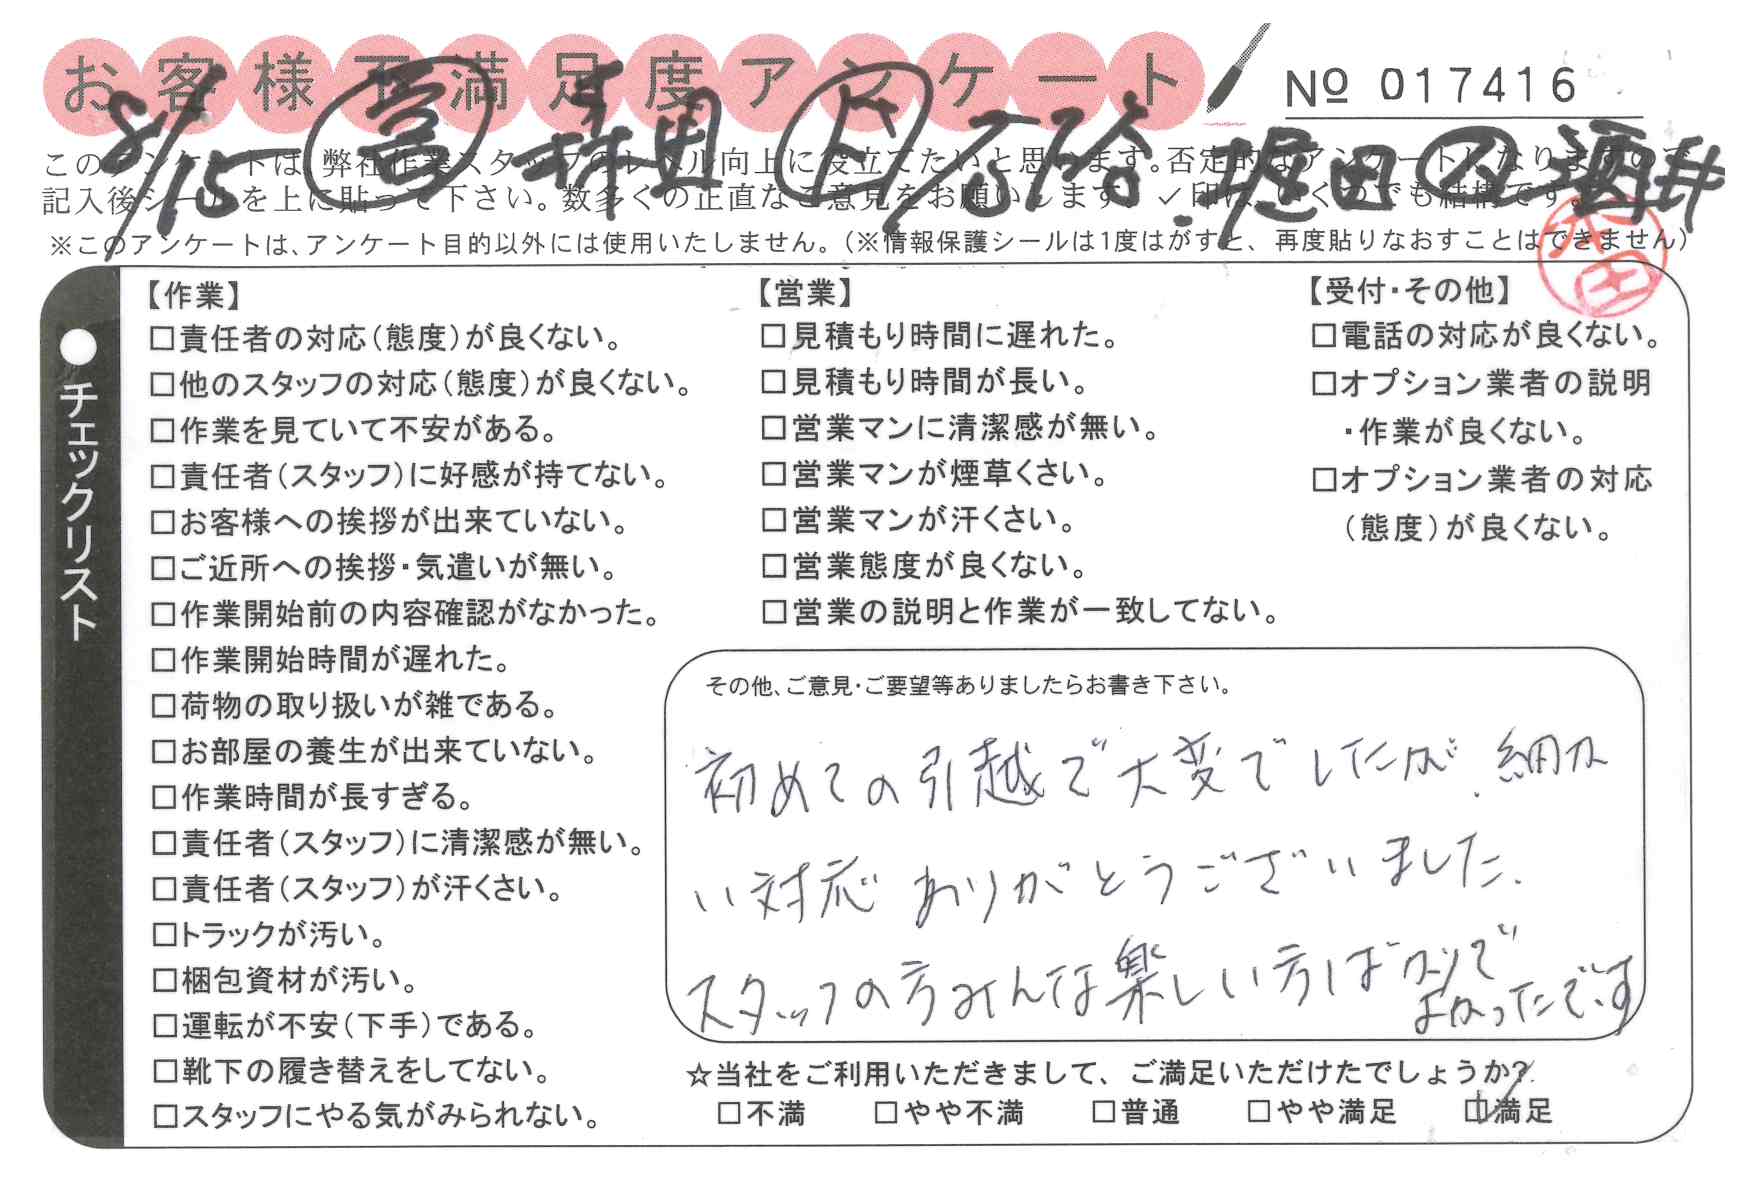 お客様不満足度アンケート
No 017416
8/15 営 森田 堀田 酒井
このアンケートは、弊社作業スタッフのレベル向上に役立てたいと思います。否定的なアンケートになりますので
記入後シールを上に貼って下さい。数多くの正直なご意見をお願いします。✓印は、いくつでも結構です。
※このアンケートは、アンケート目的以外には使用いたしません。(※情報保護シールは1度はがすと、再度貼りなおすことはできません)
本田
●チェックリスト
【作業】
□責任者の対応(態度)が良くない。
□他のスタッフの対応(態度)が良くない。
□作業を見ていて不安がある。
□責任者(スタッフ)に好感が持てない。
□お客様への挨拶が出来ていない。
□ご近所への挨拶・気遣いが無い。
□作業開始前の内容確認がなかった。
□作業開始時間が遅れた。
□荷物の取り扱いが雑である。
□お部屋の養生が出来ていない。
□作業時間が長すぎる。
□責任者(スタッフ)に清潔感が無い。
□責任者(スタッフ)が汗くさい。
□トラックが汚い。
□梱包資材が汚い。
□運転が不安(下手)である。
□靴下の履き替えをしてない。
□スタッフにやる気がみられない。
【営業】
□見積もり時間に遅れた。
□見積もり時間が長い。
□営業マンに清潔感が無い。
□営業マンが煙草くさい。
□営業マンが汗くさい。
□営業態度が良くない。
□営業の説明と作業が一致してない。
【受付・その他】
□電話の対応が良くない。
□オプション業者の説明
・作業が良くない。
□オプション業者の対応
(態度)が良くない。
その他、ご意見・ご要望等ありましたらお書き下さい。
初めての引越で大変でしたが、細か
い対応ありがとうございました。
スタッフの方みんな楽しい方ばかりで
よかったです
☆当社をご利用いただきまして、ご満足いただけたでしょうか?
□不満 □やや不満 □普通 □やや満足 ☑満足